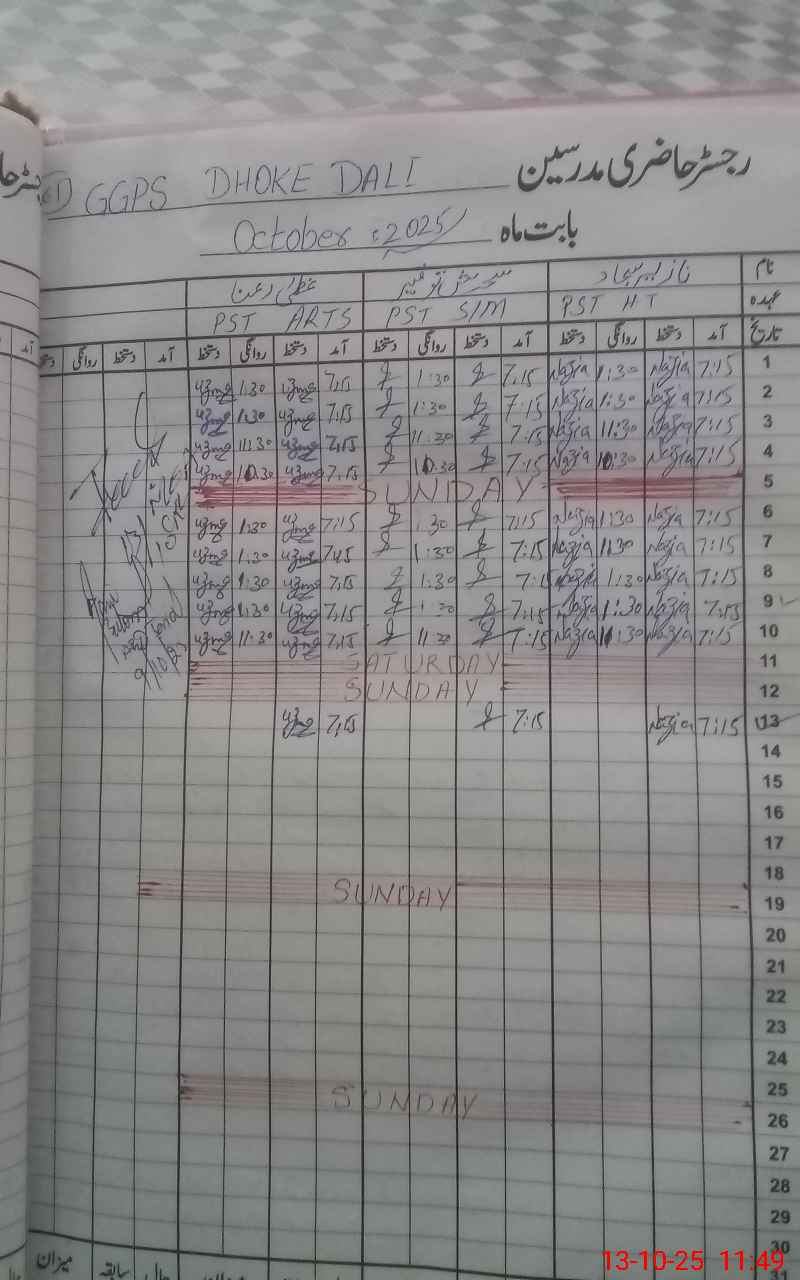 رجسٹر حاضری مدرسین GGPS DHOKE DALI
بابت ماہ October 2025
نام نازیہ سجاد عظمیٰ
عہدہ PST HT PST S/M PST ARTS
تاریخ آمد دستخط روانگی دستخط آمد دستخط روانگی دستخط آمد دستخط روانگی دستخط آمد دستخط روانگی
1 7:15 Nazia 1:30 Nazia 7:15 1:30 7:15 uzma 1:30 uzma
2 7:15 Nazia 1:30 Nazia 7:15 1:30 7:15 uzma 1:30 uzma
3 7:15 Nazia 11:30 Nazia 7:15 11:30 7:15 uzma 11:30 uzma
4 7:15 Nazia 10:30 Nazia 7:15 10:30 7:15 uzma 10:30 uzma
5 SUNDAY
6 7:15 Nazia 1:30 Nazia 7:15 1:30 7:15 uzma 1:30 uzma
7 7:15 Nazia 1:30 Nazia 7:15 1:30 7:15 uzma 1:30 uzma
8 7:15 Nazia 1:30 Nazia 7:15 1:30 7:15 uzma 1:30 uzma
9 7:15 Nazia 1:30 Nazia 7:15 1:30 7:15 uzma 1:30 uzma
10 7:15 Nazia 11:30 Nazia 7:15 11:30 7:15 uzma 11:30 uzma
11 SATURDAY
12 SUNDAY
13 7:15 Nazia 7:15 7:15 uzma
14
15
16
17
18
19 SUNDAY
20
21
22
23
24
25
26 SUNDAY
27
28
29
30
31
میزان سابقہ حال
13-10-25 11:49